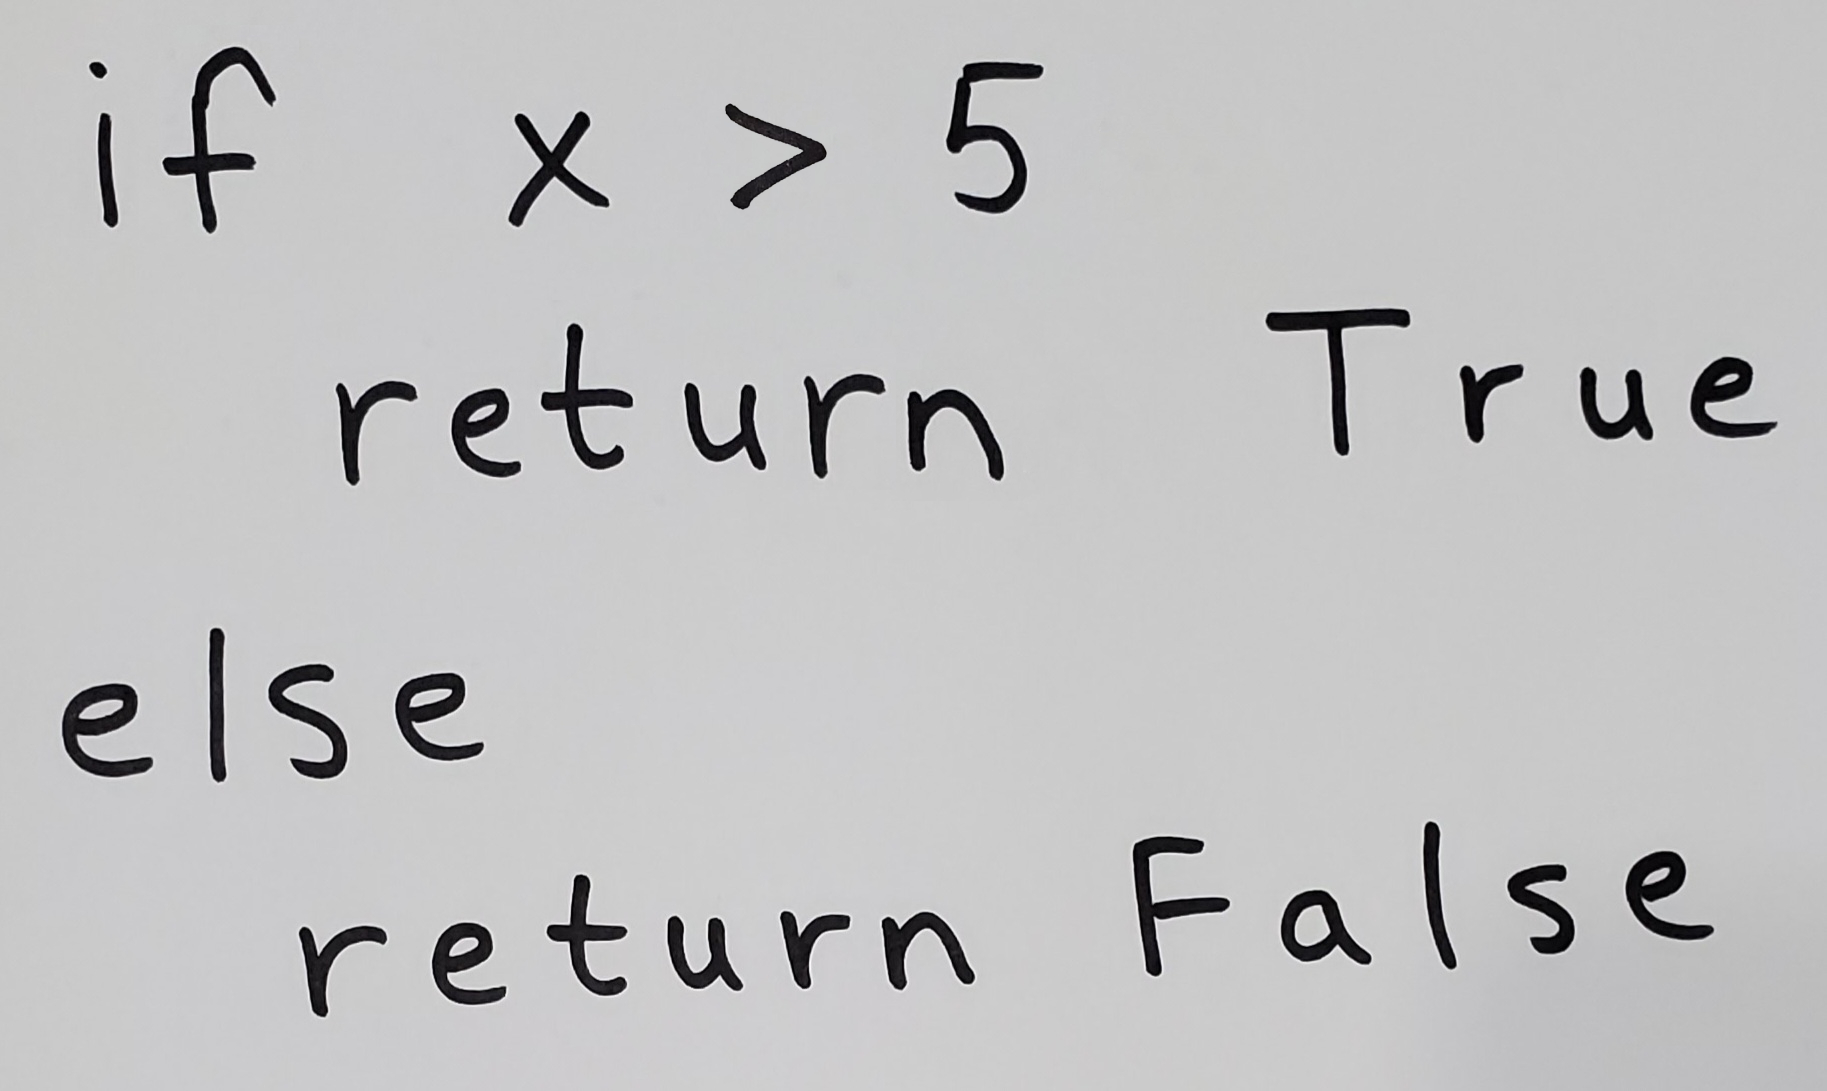 if x > 5
return True
else
return False